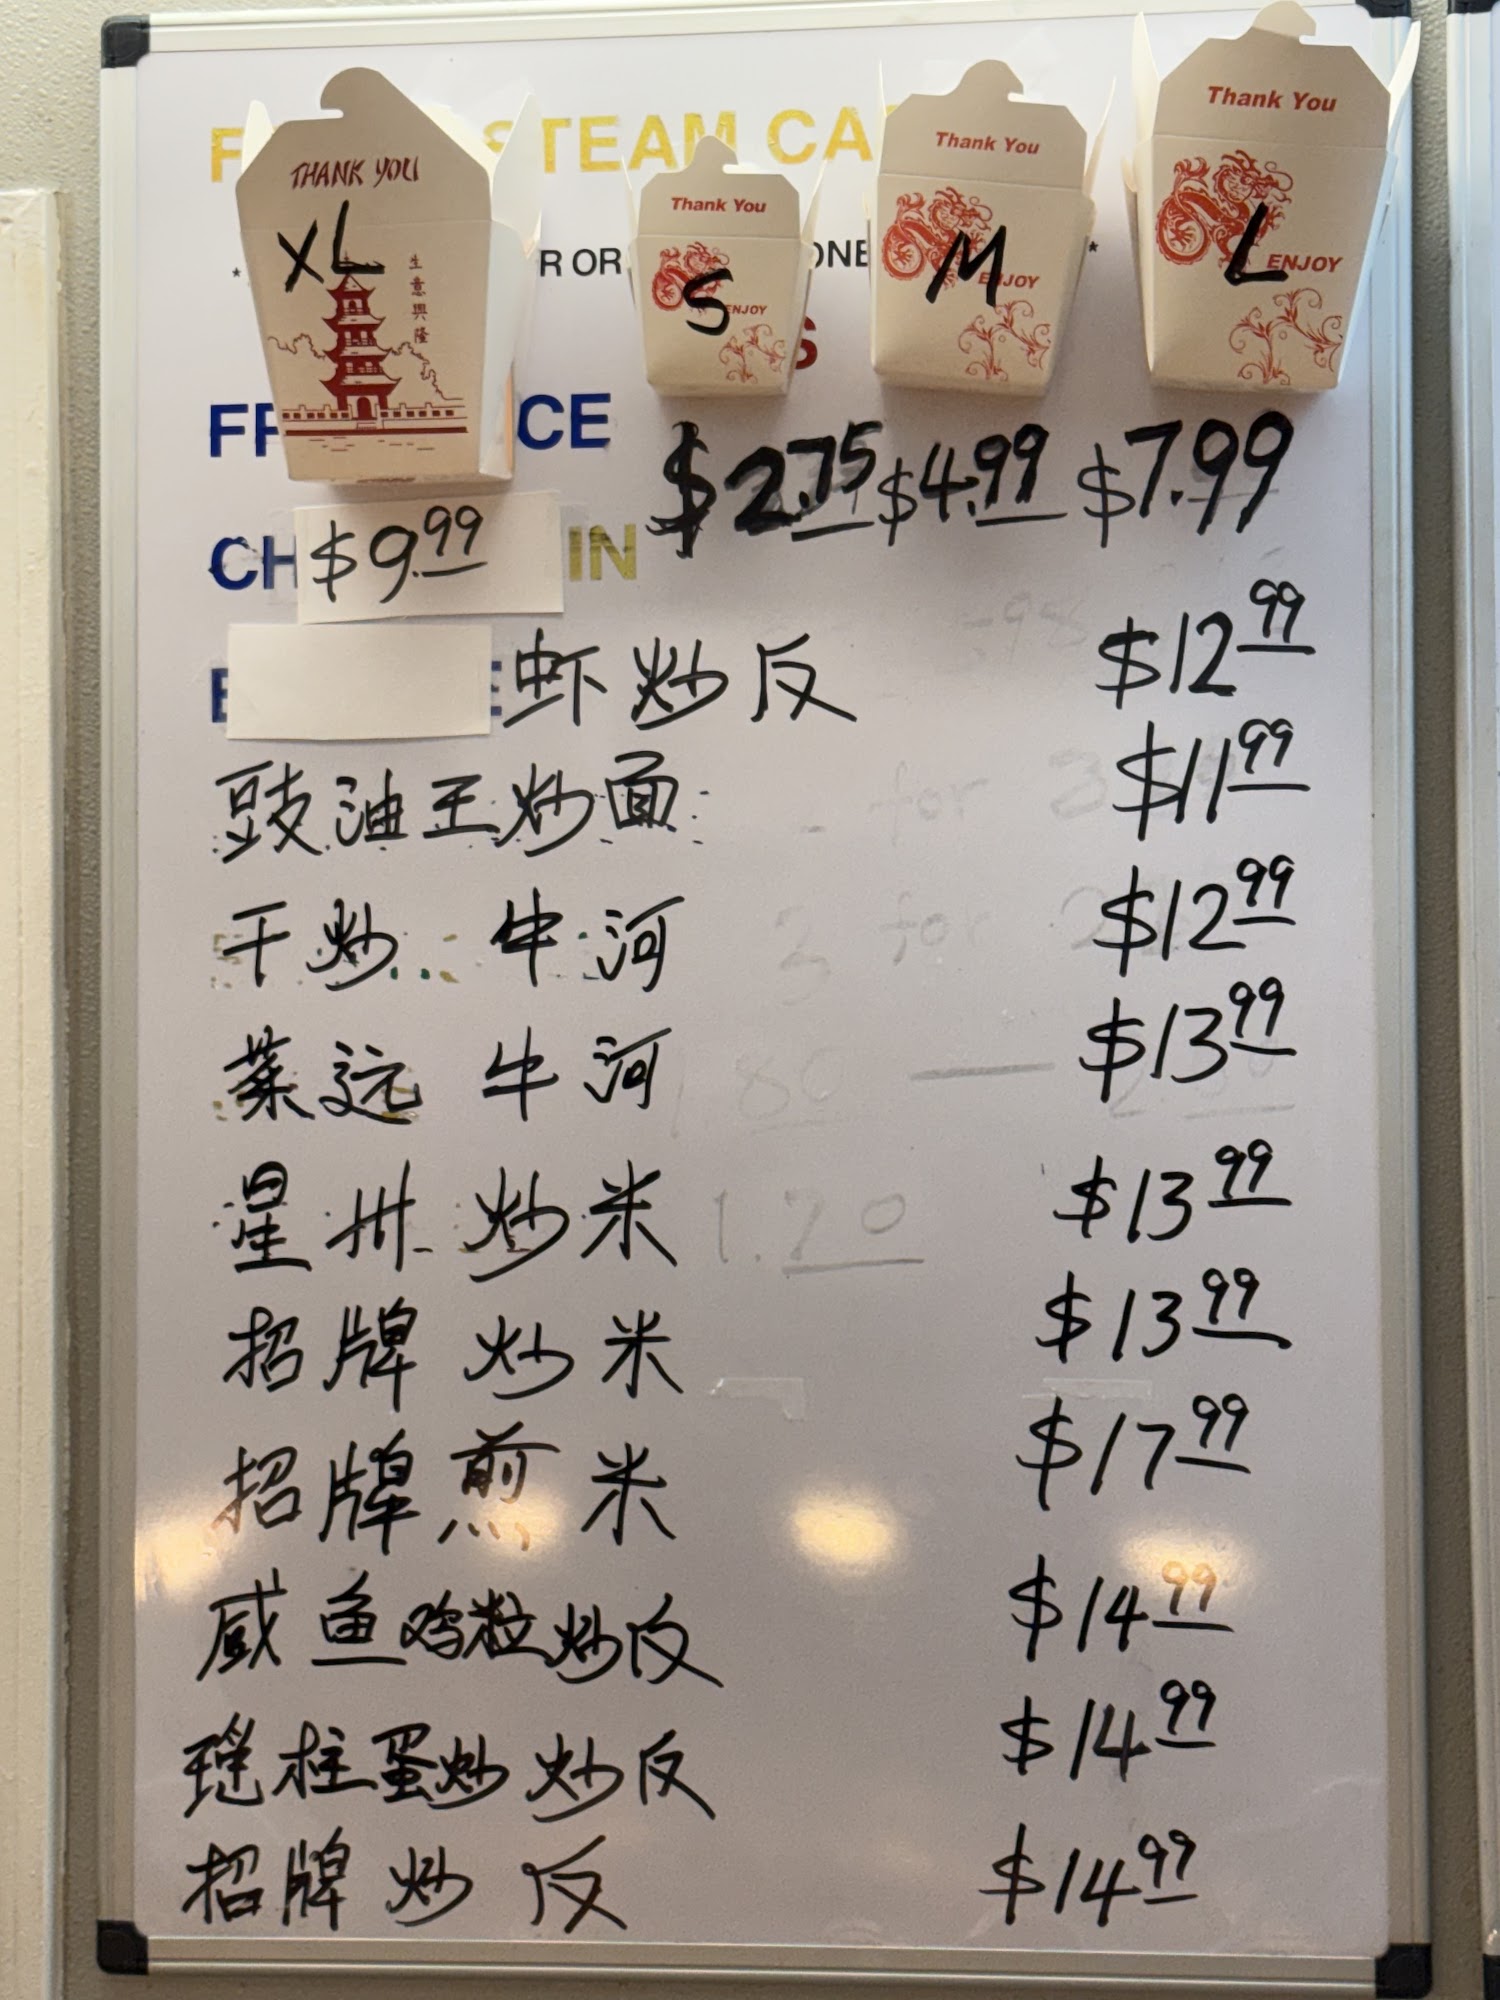 STEAM CA
THANK YOU
XL
生意興隆
Thank You
S
ENJOY
Thank You
M
ENJOY
Thank You
L
ENJOY
* R OR ONE *
S
FR CE
$2.75 $4.99 $7.99
CH $9.99 IN
虾炒反 $12.99
豉油王炒面 $11.99
干炒牛河 $12.99
菜远牛河 $13.99
星卅炒米 $13.99
招牌炒米 $13.99
招牌煎米 $17.99
咸鱼鸡粒炒反 $14.99
瑶柱蛋炒炒反 $14.99
招牌炒反 $14.99